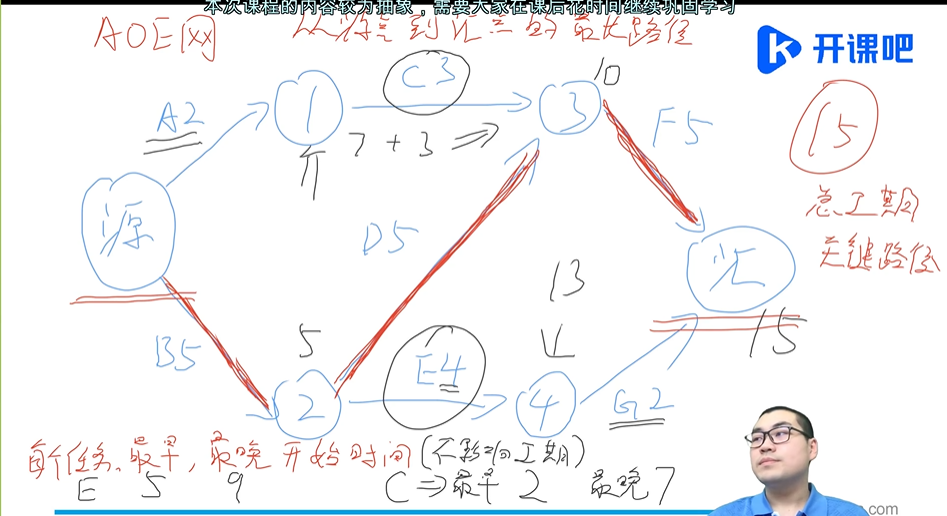 本次课程的内容较为抽象，需要大家在课后花时间继续巩固学习
AOE网
从源点到汇点的最长路径
开课吧
C3
10
A2
1
3
F5
15
7+3⇒
源
D5
总工期
关键路径
13
汇
B5
5
E4
15
2
4
G2
每个任务、最早，最晚开始时间(不影响工期)
E 5 9
C⇒最早 2 最晚7
.com